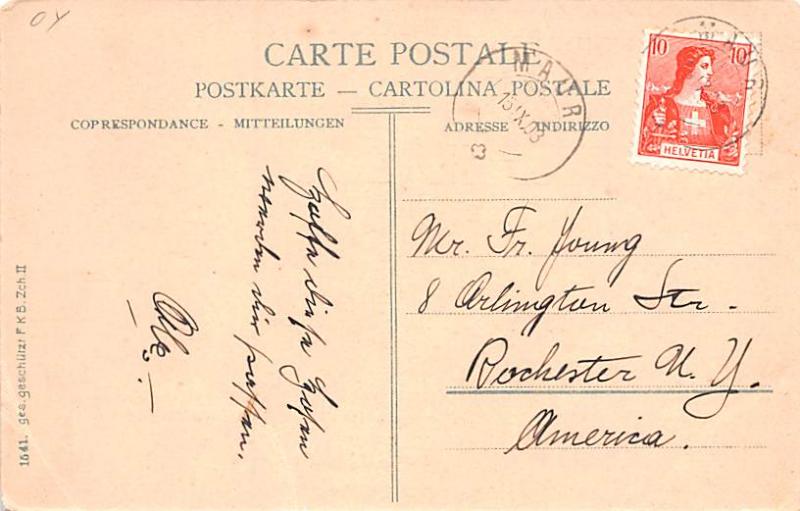 OY
CARTE POSTALE
POSTKARTE — CARTOLINA POSTALE
CORRESPONDANCE - MITTEILUNGEN
ADRESSE INDIRIZZO
MAUR
13.IX.08
10 10
HELVETIA
Hoffe diese Hosen
werden dir passen.
Mr. Fr. Young
8 Arlington Str.
Rochester N. Y.
America.
1641. ges. geschützt F.K.B. Zch. II